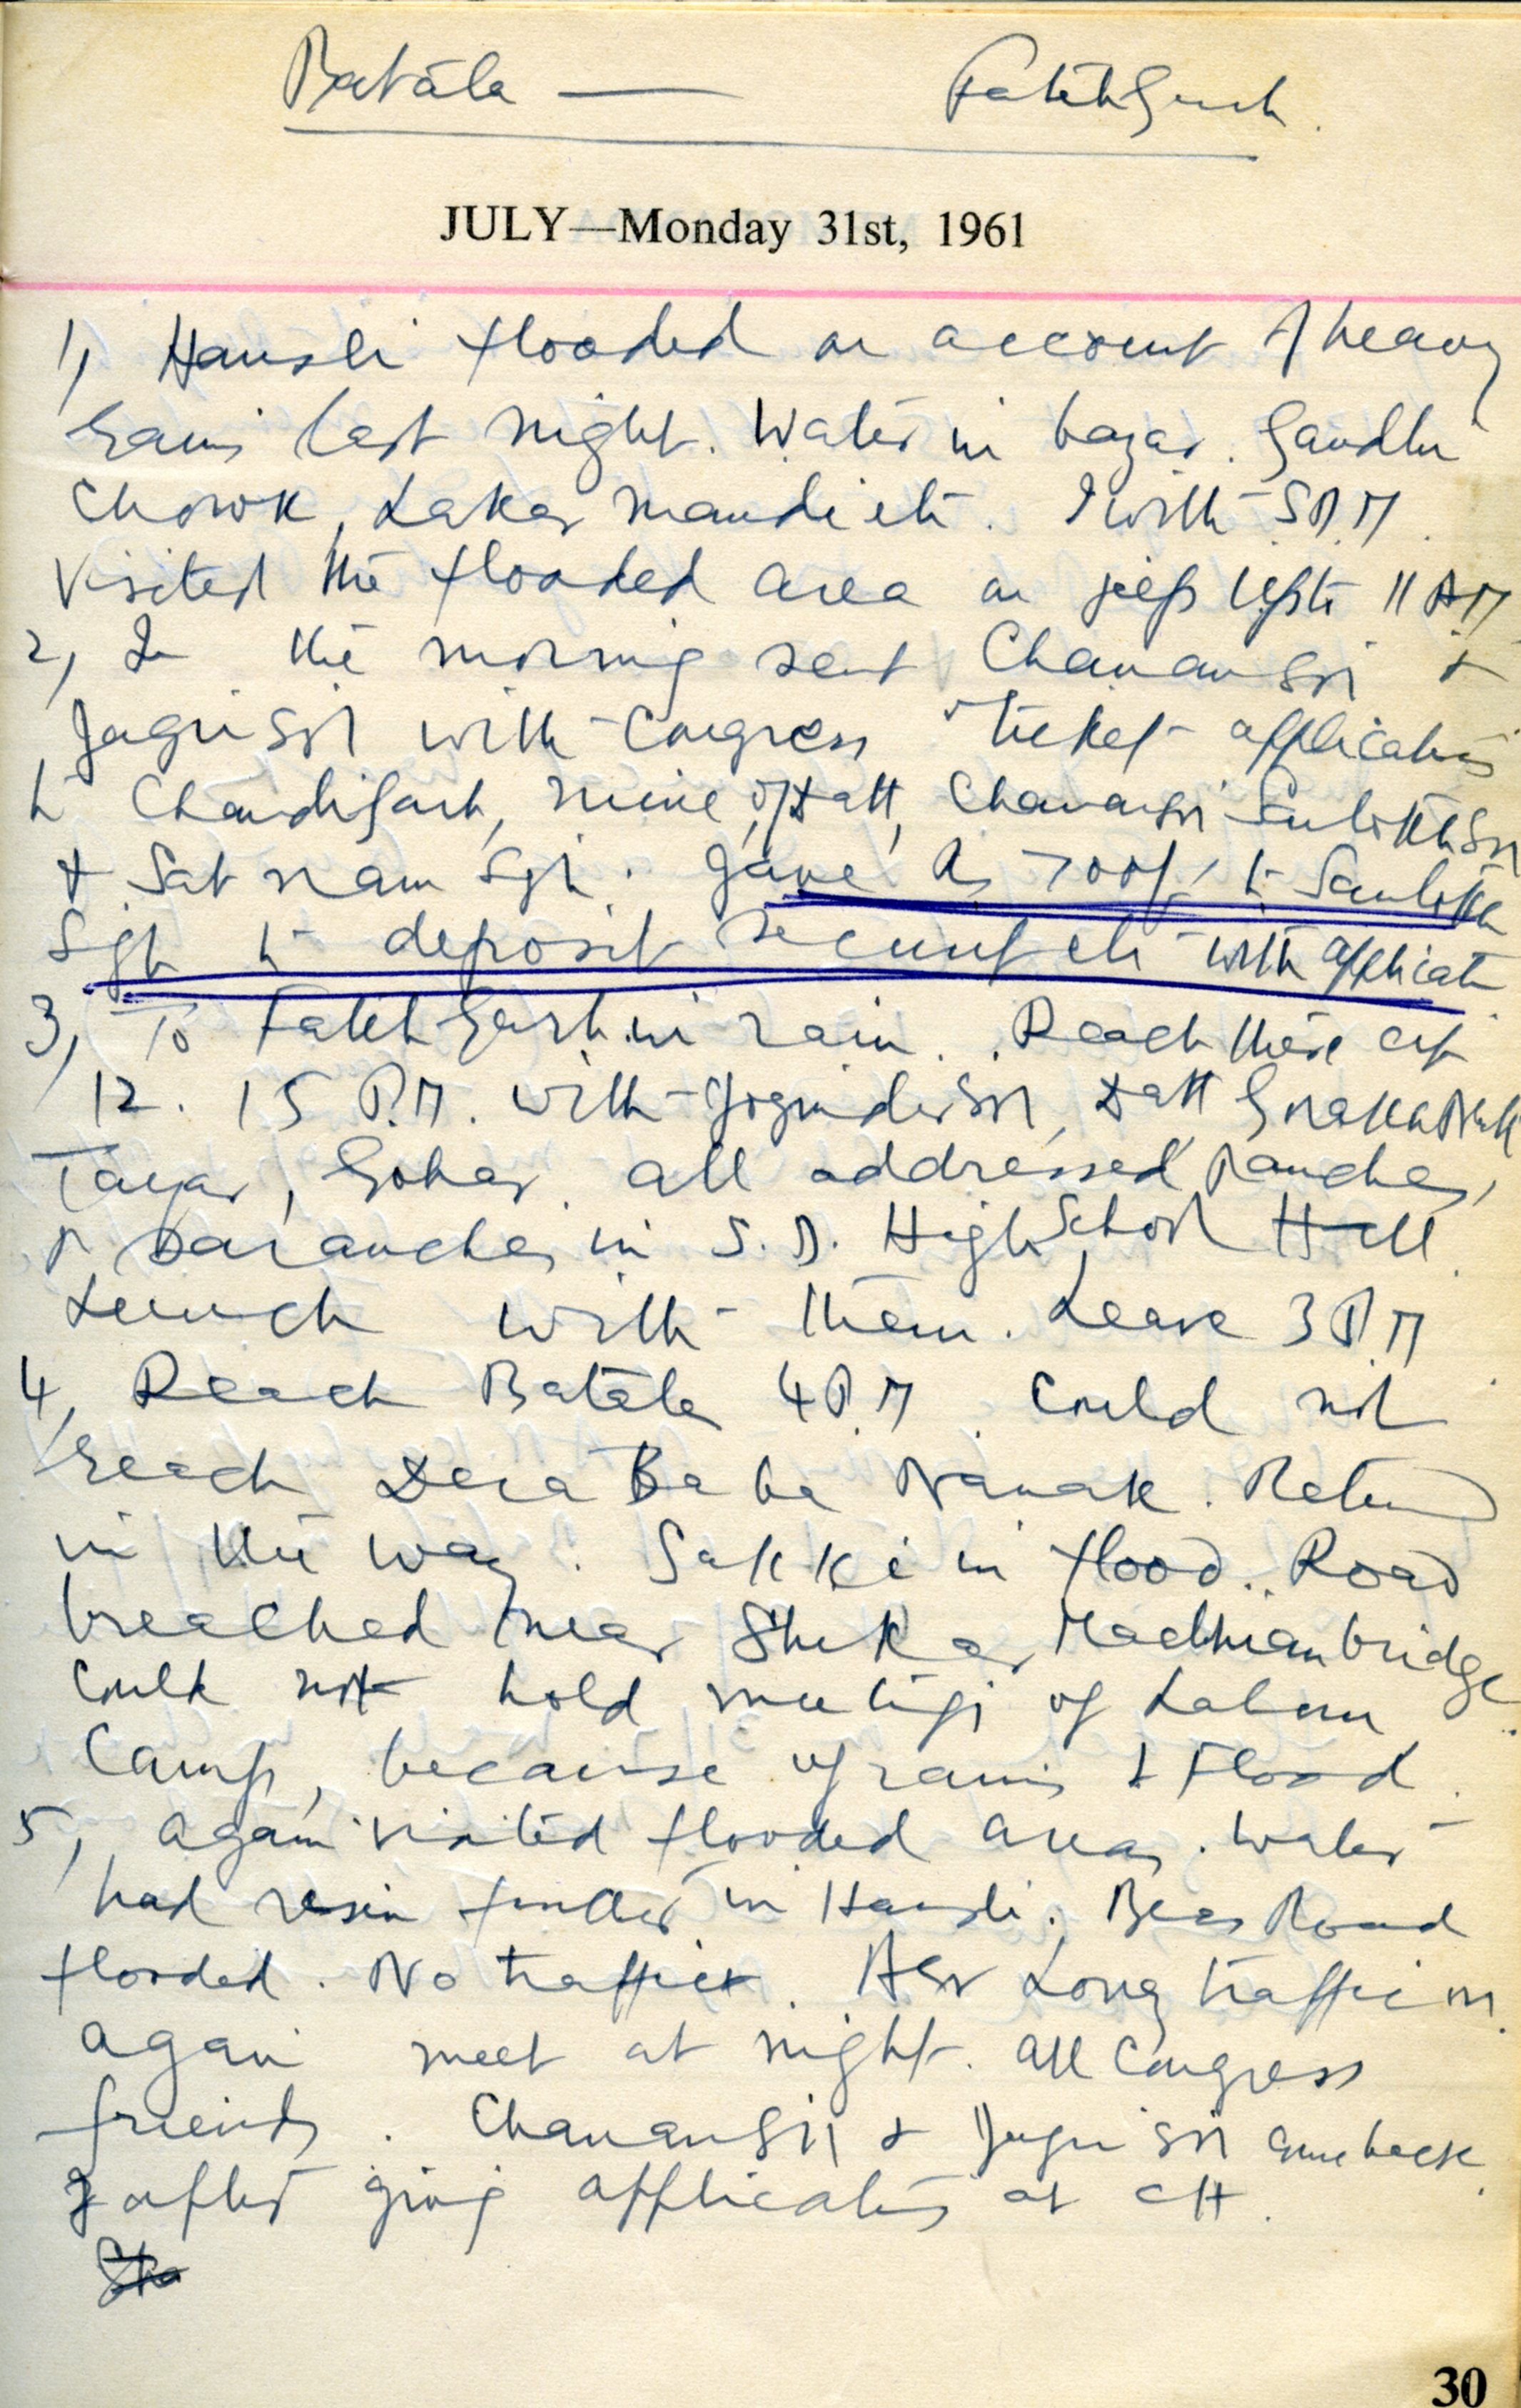 Batala — Fatehgarh.
JULY—Monday 31st, 1961
1, Hansli flooded on account of heavy
rains last night. Water in bazar. Gandhi
Chowk, Lakar mandi etc. I with S.D.M.
visited the flooded area on jeep upto 11 AM
2, In the morning sent Chanan Sgh &
Jagir Sgh with Congress ticket applications
to Chandigarh, mine, of Datt, Chanan Sgh Santokh Sgh
& Sat nam Sgh. gave Rs 700/- to Santokh
Sgh to deposit security etc with applicati
3, To Fatehgarh in rain. Reach there at
12.15 P.M. with Joginder Sgh, Datt
Tayar, Gohar. all addressed Panches,
& Sarpanches in S.D. High School Hall.
Lunch with them. Leave 3 P.M
4, Reach Batala 4 P.M. Could not
reach Dera Baba Nanak. Return
in the way. Sakki in flood. Road
breached near Shikar Machhian bridge
Could not hold meetings of Labour
Camp, because of rains & Flood.
5, again visited flooded area. Water
had risen further in Hansli. Beas Road
flooded. No traffic. Asr Long traffic on.
again meet at night. all Congress
friends. Chanan Sgh & Jagir Sgh came back
after giving applications at CH.
30